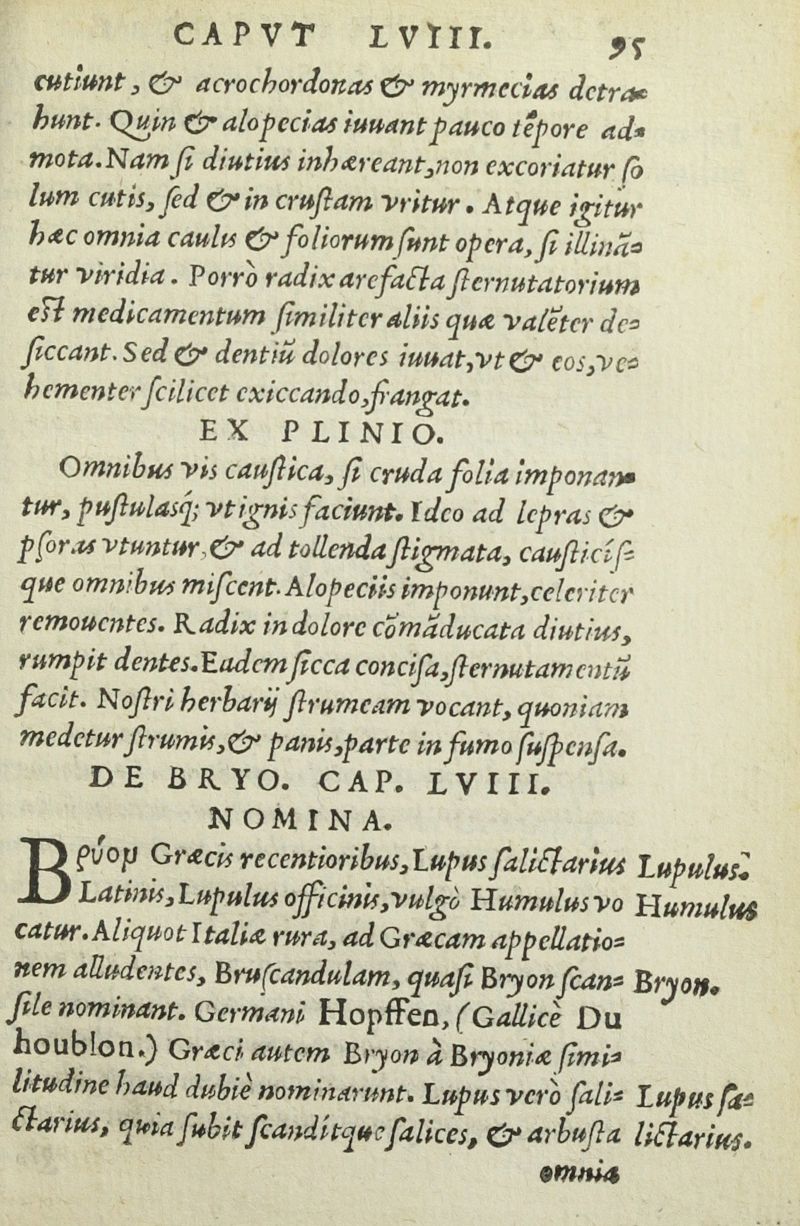 CAPVT LVIII. 95
cutiunt, & acrochordonas & myrmecias detra-
hunt. Quin & alopecias iuuant pauco tēpore ad-
mota. Nam ſi diutius inhæreant, non excoriatur ſo
lum cutis, ſed & in cruſtam vritur. Atque igitur
hæc omnia caulis & foliorum ſunt opera, ſi illinā-
tur viridia. Porrò radix arefacta ſternutatorium
eſt medicamentum ſimiliter aliis quæ valēter de-
ſiccant. Sed & dentiū dolores iuuat, vt & eos, ve-
hementer ſcilicet exiccando, frangat.
EX PLINIO.
Omnibus vis cauſtica, ſi cruda folia imponan-
tur, puſtulasq́; vt ignis faciunt. Ideo ad lepras &
pſoras vtuntur, & ad tollenda ſtigmata, cauſticiſ-
que omnibus miſcent. Alopeciis imponunt, celeriter
remouentes. Radix in dolore cōmāducata diutius,
rumpit dentes. Eadem ſicca conciſa, ſternutamentū
facit. Noſtri herbarij ſtrumeam vocant, quoniam
medetur ſtrumis, & panis, parte in fumo ſuſpenſa.
DE BRYO. CAP. LVIII.
NOMINA.
Βρύον Græcis recentioribus, Lupus ſalictarius
Latinis, Lupulus officinis, vulgò Humulus vo
catur. Aliquot Italiæ rura, ad Græcam appellatio-
nem alludentes, Bruſcandulam, quaſi Bryon ſcan-
ſile nominant. Germani Hopffen, (Gallicè Du
houblon.) Græci autem Bryon à Bryoniæ ſimi-
litudine haud dubiè nominarunt. Lupus verò ſali-
ctarius, quia ſubit ſcandítque ſalices, & arbuſta
omnia
Lupulus.
Humulus
Bryon.
Lupus ſa-
lictarius.